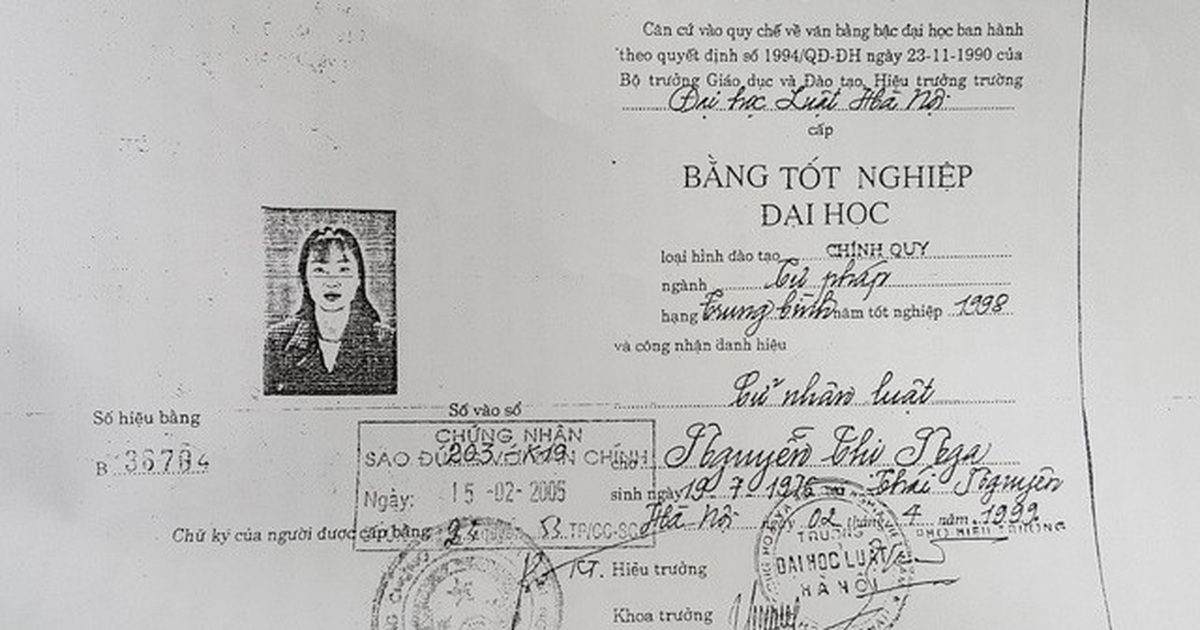 Căn cứ vào quy chế về văn bằng bậc đại học ban hành
theo quyết định số 1994/QĐ-ĐH ngày 23-11-1990 của
Bộ trưởng Giáo dục và Đào tạo, Hiệu trưởng trường
Đại học Luật Hà Nội
cấp
BẰNG TỐT NGHIỆP
ĐẠI HỌC
loại hình đào tạo CHÍNH QUY
ngành Tư pháp
hạng Trung bình năm tốt nghiệp 1998
và công nhận danh hiệu
Cử nhân luật
Số hiệu bằng
B 36704
Số vào sổ
203 K19
CHỨNG NHẬN
SAO ĐÚNG VỚI BẢN CHÍNH
Ngày: 15-02-2005
quyển 53.TP/CC-SC
cho Nguyễn Thị Nga
sinh ngày 19-7-1976 tại Thái Nguyên
Hà Nội ngày 02 tháng 4 năm 1999
Chữ ký của người được cấp bằng
PHÓ HIỆU TRƯỞNG
KT. Hiệu trưởng
TRƯỜNG
ĐẠI HỌC LUẬT
HÀ NỘI
Khoa trưởng